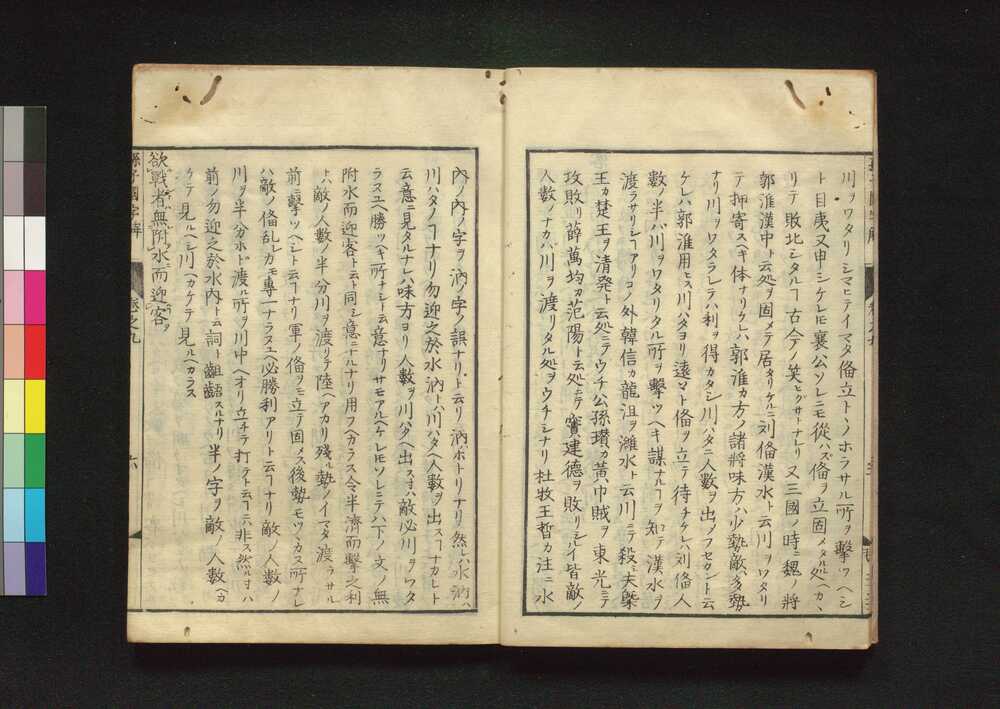 川ヲワタリシマヒテイマタ備立トヽノホラサル所ヲ擊ツヘシ
ト目夷又申シケレ𪜈襄公ソレニモ從ハズ備ヲ立固メタル処ヘカヽ
リテ敗北シタルヿ古今ノ笑ヒクサトナレリ又三國ノ時ニ魏ノ將
郭淮漢中ト云処ヲ固メテ居タリケルニ刘備漢水ト云川ヲワタリ
テ押寄スヘキ体ナリケレハ郭淮カ方ノ諸將味方ハ少勢敵ハ多勢
ナリ川ヲワタラレテハ利ヲ得カタシ川ハタニ人數ヲ出シフセカント云
ケレハ郭淮用ヒス川ハタヨリ遠マト備ヲ立テ待チケレハ刘備人
數ノ半ハ川ヲワタリタル所ヲ擊ツヘキ謀ナルヿヲ知テ漢水ヲ
渡ラサリシヿアリコノ外韓信カ龍沮ヲ濰水ト云川ニテ殺シ夫槩
王カ楚王ヲ清発ト云処ニテウチ公孫瓚カ黃巾賊ヲ東光ニテ
攻敗リ薛萬均カ范陽ト云処ニテ竇建德ヲ敗リシハイ皆敵ノ
人數ノナカハ川ヲ渡リタル処ヲウチシナリ杜牧王晳カ注ニ水
內ノ內ノ字ヲ汭ノ字ノ誤ナリト云リ汭ハホトリナリ然レハ水汭ハ
川ハタノヿナリ勿迎之於水汭トハ川ハタヘ人數ヲ出スヿナカレト
云意ニ見タルナレハ味方ヨリ人數ヲ川ハタヘ出スキハ敵必川ヲワタ
ラスユヘ勝ツヘキ所ナシト云意ナリサモアルヘケレ𪜈ソレニテハ下ノ文ノ無
附水而迎客ト云ト同シ意ニナルナリ用フヘカラス令半濟而擊之利
トハ敵ノ人數ノ半分川ヲ渡リテ陸ヘアカリ殘ル勢ノイマタ渡ラサル
前ニ擊ツヘシト云ヿナリ軍ノ備ヲモ立テ固メス後勢モツヽカス所ナレ
ハ敵ノ備乱レカモ專一ナラスユヘ必勝利アリト云ヿナリ敵ノ人數ノ
川ヲ半分ホド渡ル所ヲ川中ヘオリ立チテ打テト云ヿニハ非ス然ルキハ
前ノ勿迎之於水內ト云詞ト齟齬スルナリ半ノ字ヲ敵ノ人數ヘカ
ケテ見ルヘシ川ヘカケテ見ルヘカラス
欲戰者無附水而迎客
孫子國字解 卷之九 六